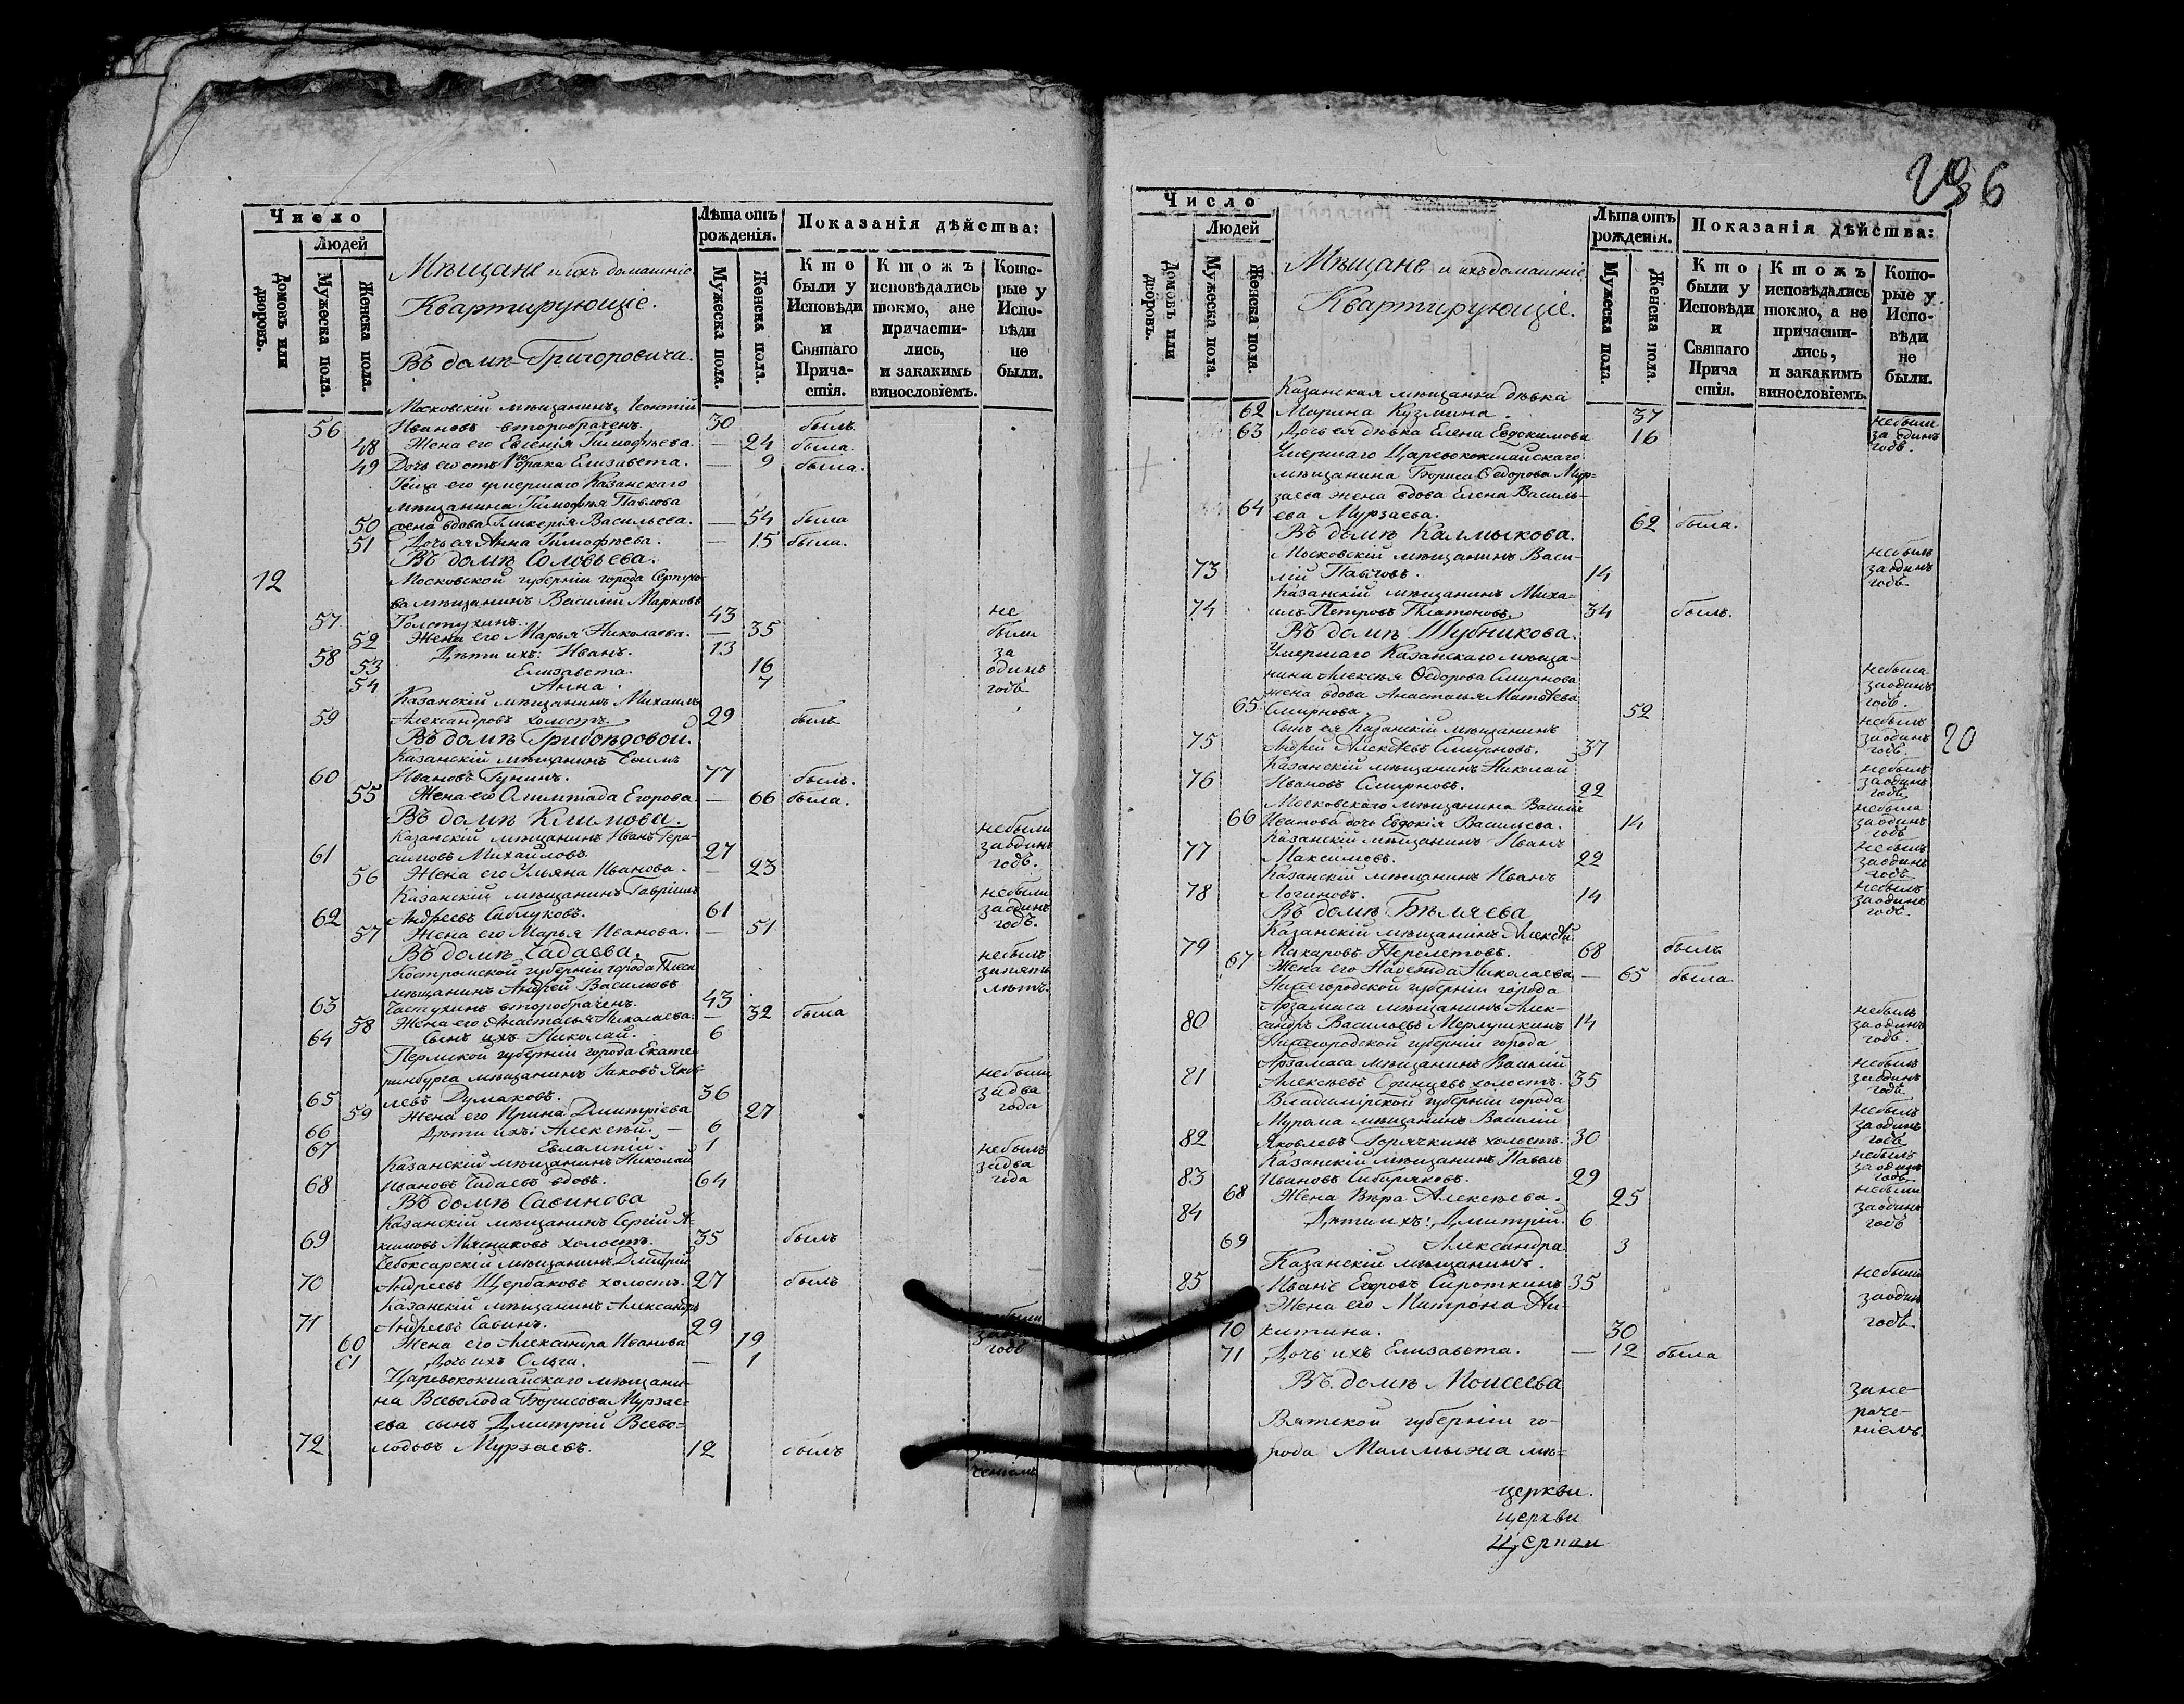 Число
Людей
Домовъ или дворовъ.
Мужеска пола.
Женска пола.
Мѣщане и ихъ домашніе
Квартирующіе.
Въ домѣ Григоровича.
Лѣта отъ рожденія.
Мужеска пола.
Женска пола.
Показанія дѣйства:
Кто были у Исповѣди и Святаго Причастія.
Ктожъ исповѣдались токмо, а не причастились, и закакимъ винословіемъ.
Которые у Исповѣди не были.
Московскій мѣщанинъ Леонтій
56 Ивановъ второбраченъ. 30 былъ
48 Жена его Евгенія Тимофѣева. — 24 была.
49 Дочь его отъ 1го брака Елизавета. — 9 была.
Теща его умершаго Казанскаго
мѣщанина Тимофѣя Павлова
50 жена вдова Гликерія Васильева. — 54 была
51 Дочь ея Анна Тимофѣева. — 15 была.
Въ домѣ Соловьева.
12 Московской губерніи города Серпухо-
ва мѣщанинъ Василій Марковъ
57 Голстухинъ. 43 не
52 Жена его Марья Николаева. — 35 были
58 Дѣти ихъ: Иванъ. 13 за
53 Елизавета. 16 одинъ
54 Анна. 7 годъ
Казанскій мѣщанинъ Михаилъ
59 Александровъ холостъ. 29 былъ
Въ домѣ Грибоѣдовой.
Казанскій мѣщанинъ Ефимъ
60 Ивановъ Гунинъ. 77 былъ.
55 Жена его Олимпіада Егорова. — 66 была.
Въ домѣ Климова.
Казанскій мѣщанинъ Иванъ Гера- небыли
61 симовъ Михайловъ. 27 заодинъ
56 Жена его Ульяна Иванова. — 23 годъ.
Казанскій мѣщанинъ Гавріилъ небыли
62 Андреевъ Саблуковъ. 61 заодинъ
57 Жена его Марья Иванова. — 51 годъ.
Въ домѣ Чадаева.
Костромской губерніи города Плеса небылъ
мѣщанинъ Андрей Васильевъ запять
63 Частухинъ второбраченъ. 43 лѣтъ.
58 Жена его Анастасья Николаева. — 32 была
64 Сынъ ихъ Николай. 6
Пермской губерніи города Екате-
ринбурга мѣщанинъ Іаковъ Яков- небыли
65 левъ Думаковъ. 36 задва
59 Жена его Ирина Дмитріева 27 года
66 Дѣти ихъ: Алексѣй. — 6
67 Евлампій. 1
Казанскій мѣщанинъ Николай небылъ задва
68 Ивановъ Чадаевъ вдовъ. 64 года
Въ домѣ Савинова
Казанскій мѣщанинъ Сергій А-
69 кимовъ Мясниковъ холостъ. 35 былъ
Чебоксарскій мѣщанинъ Дмитрій
70 Андреевъ Щербаковъ холостъ. 27 былъ
Казанскій мѣщанинъ Александръ
71 Андреевъ Савинъ. 29
60 Жена его Александра Иванова 19
61 Дочь ихъ Ольга. — 1 годъ
Царевококшайскаго мѣщани-
на Всеволода Борисова Мурза-
ева сынъ Дмитрій Всево-
72 лодовъ Мурзаевъ. 12 былъ
ченіемъ
236
Число
Людей
Домовъ или дворовъ.
Мужеска пола.
Женска пола.
Мѣщане и ихъ домашніе
Квартирующіе.
Лѣта отъ рожденія.
Мужеска пола.
Женска пола.
Показанія дѣйства:
Кто были у Исповѣди и Святаго Причастія.
Ктожъ исповѣдались токмо, а не причастились, и закакимъ винословіемъ.
Которые у Исповѣди не были.
Казанская мѣщанка дѣвка
62 Марина Кузмина. 37 небыли
63 Дочь ея дѣвка Елена Евдокимова 16 за одинъ годъ.
Умершаго Царевококшайскаго
мѣщанина Бориса Ѳедорова Мур-
заева жена вдова Елена Василь-
64 ева Мурзаева. 62 была.
Въ домѣ Калмыкова.
Московскій мѣщанинъ Васи- небылъ
73 лій Павловъ. 14 заодинъ годъ
Казанскій мѣщанинъ Миха-
74 илъ Петровъ Платоновъ. 34 былъ.
Въ домѣ Шубникова.
Умершаго Казанскаго мѣща-
нина Алексѣя Ѳедорова Смирнова небыла
жена вдова Анастасья Матвѣева заодинъ
65 Смирнова 52 годъ.
Сынъ ея Казанскій мѣщанинъ небылъ
75 Андрей Алексѣевъ Смирновъ. 37 заодинъ годъ 20
Казанскій мѣщанинъ Николай небылъ
76 Ивановъ Смирновъ. 22 заодинъ годъ
Московскаго мѣщанина Василія небыла
66 Иванова дочь Евдокія Васильева. 14 заодинъ годъ
Казанскій мѣщанинъ Иванъ небылъ
77 Максимовъ. 22 заодинъ годъ
Казанскій мѣщанинъ Иванъ небылъ
78 Логиновъ. 14 заодинъ годъ.
Въ домѣ Бѣляева
Казанскій мѣщанинъ Алексѣй
79 Макаровъ Перелетовъ. 68 былъ
67 Жена его Надежда Николаева — 65 была
Нижегородской губерніи города
Арзамаса мѣщанинъ Алек- небылъ
80 сандръ Васильевъ Мерлушкинъ 14 заодинъ
Нижегородской губерніи города годъ.
Арзамаса мѣщанинъ Василій небылъ
81 Алексѣевъ Одинцевъ холостъ. 35 заодинъ
Владимірской губерніи города годъ
Мурома мѣщанинъ Василій небылъ заодинъ
82 Яковлевъ Горячкинъ холостъ. 30 годъ
Казанскій мѣщанинъ Павелъ небылъ заодинъ
83 Ивановъ Сибиряковъ. 29 годъ
68 Жена Вѣра Алексѣева. 25 небыли
84 Дѣти ихъ: Дмитрій. 6 заодинъ годъ
69 Александра 3
Казанскій мѣщанинъ.
85 Иванъ Егоровъ Сироткинъ 35 небыли
Жена его Матрона Ни- заодинъ
70 китина. 30 годъ
71 Дочь ихъ Елизавета. — 12 была
Въ домѣ Моисеева
Вятской губерніи го-
рода Малмыжа мѣ-
зане-
раче-
ніемъ.
церкви.
церкви